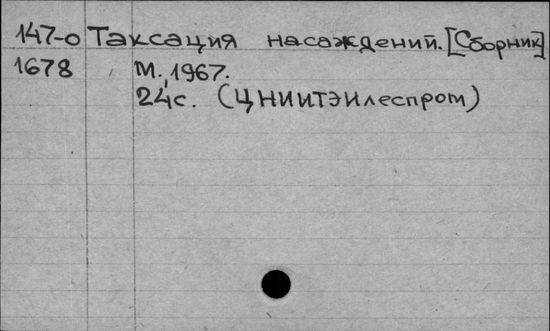 147-о Таксация насаждений. [Сборник]
1678 М., 1967.
24с. (ЦНИИТЭИлеспром)